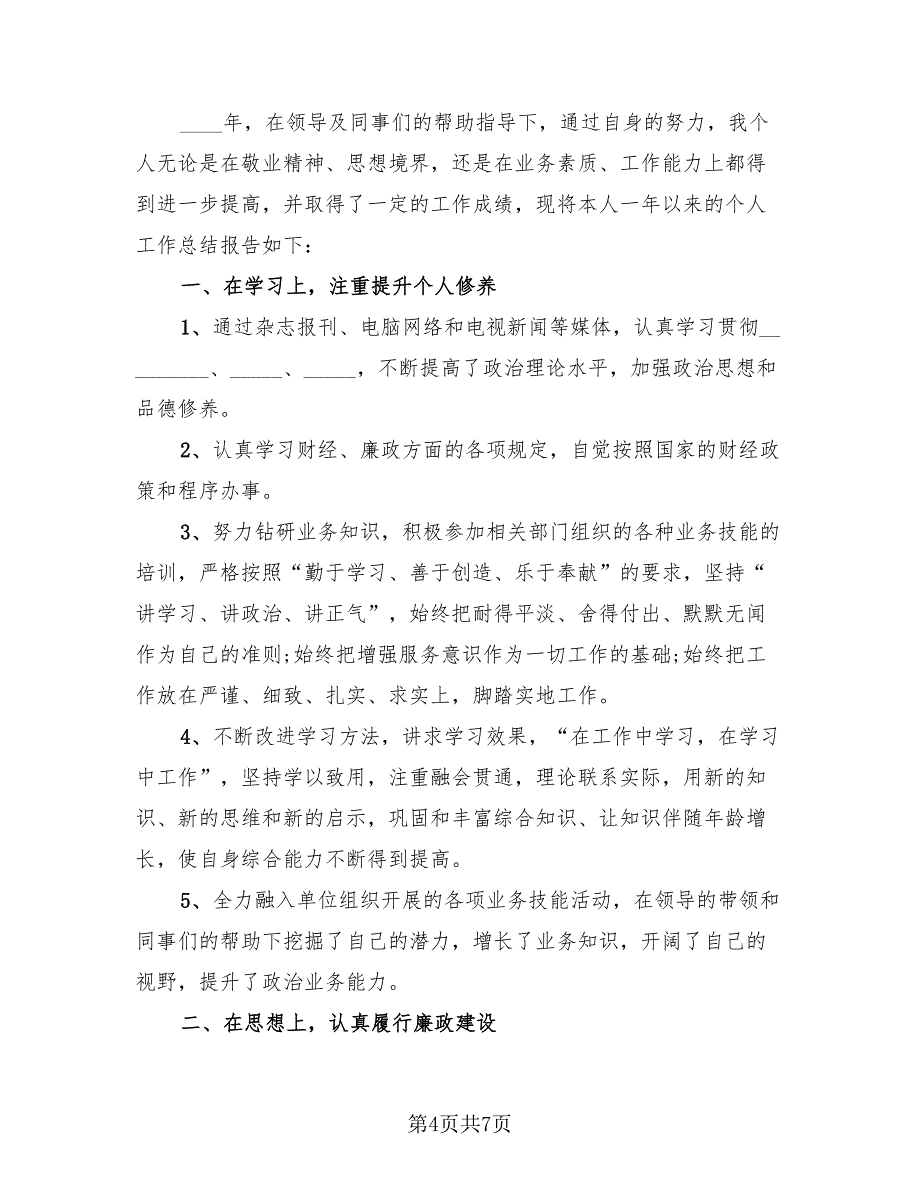 ____年，在领导及同事们的帮助指导下，通过自身的努力，我个
人无论是在敬业精神、思想境界，还是在业务素质、工作能力上都得
到进一步提高，并取得了一定的工作成绩，现将本人一年以来的个人
工作总结报告如下：
一、在学习上，注重提升个人修养
1、通过杂志报刊、电脑网络和电视新闻等媒体，认真学习贯彻__
_______、_____、_____，不断提高了政治理论水平，加强政治思想和
品德修养。
2、认真学习财经、廉政方面的各项规定，自觉按照国家的财经政
策和程序办事。
3、努力钻研业务知识，积极参加相关部门组织的各种业务技能的
培训，严格按照“勤于学习、善于创造、乐于奉献”的要求，坚持“
讲学习、讲政治、讲正气”，始终把耐得平淡、舍得付出、默默无闻
作为自己的准则;始终把增强服务意识作为一切工作的基础;始终把工
作放在严谨、细致、扎实、求实上，脚踏实地工作。
4、不断改进学习方法，讲求学习效果，“在工作中学习，在学习
中工作”，坚持学以致用，注重融会贯通，理论联系实际，用新的知
识、新的思维和新的启示，巩固和丰富综合知识、让知识伴随年龄增
长，使自身综合能力不断得到提高。
5、全力融入单位组织开展的各项业务技能活动，在领导的带领和
同事们的帮助下挖掘了自己的潜力，增长了业务知识，开阔了自己的
视野，提升了政治业务能力。
二、在思想上，认真履行廉政建设
第4页共7页